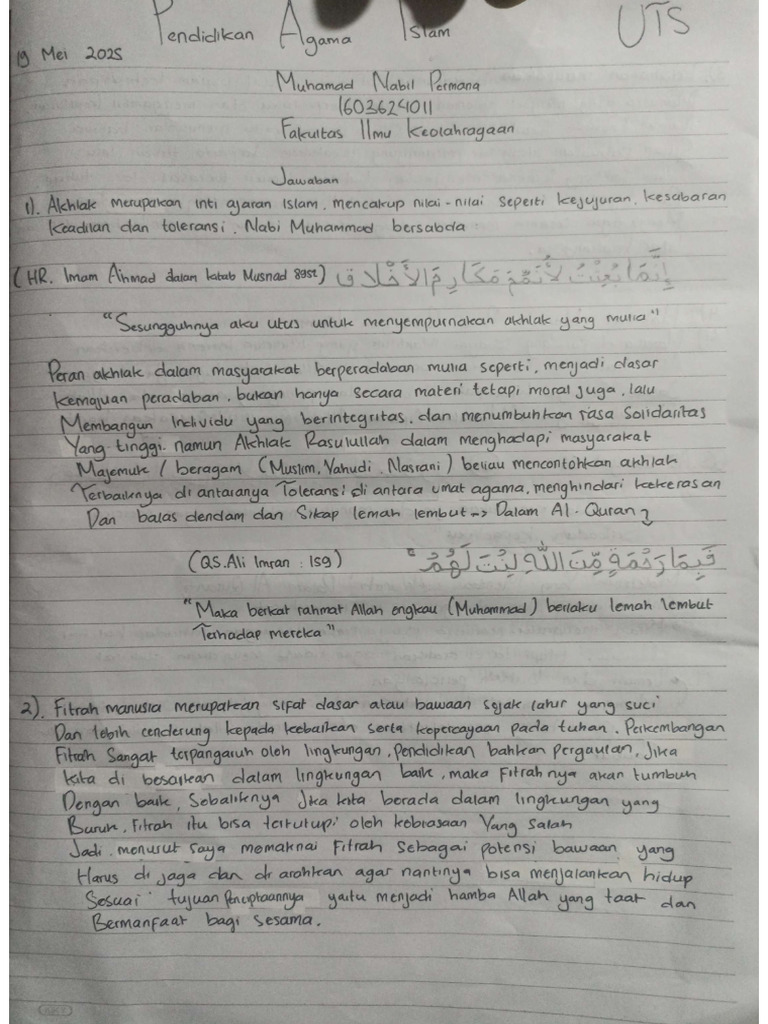 Pendidikan Agama Islam UTS
19 Mei 2025
Muhamad Nabil Permana
1603624011
Fakultas Ilmu Keolahragaan
Jawaban
1). Akhlak merupakan inti ajaran Islam, mencakup nilai-nilai seperti kejujuran, kesabaran
keadilan dan toleransi. Nabi Muhammad bersabda :
(HR. Imam Ahmad dalam kitab Musnad 8952) إِنَّمَا بُعِثْتُ لأُتَمِّمَ مَكَارِمَ الأَخْلاَقِ
"Sesungguhnya aku utus untuk menyempurnakan akhlak yang mulia"
Peran akhlak dalam masyarakat berperadaban mulia seperti, menjadi dasar
kemajuan peradaban, bukan hanya secara materi tetapi moral juga, lalu
Membangun Individu yang berintegritas, dan menumbuhkan rasa Solidaritas
Yang tinggi. namun Akhlak Rasulullah dalam menghadapi masyarakat
Majemuk / beragam (Muslim, Yahudi, Nasrani) beliau mencontohkan akhlak
Terbaiknya di antaranya Toleransi di antara umat agama, menghindari kekerasan
Dan balas dendam dan Sikap lemah lembut -> Dalam Al-Quran
(QS. Ali Imran : 159) فَبِمَا رَحْمَةٍ مِّنَ اللَّهِ لِنْتَ لَهُمْ ۚ
"Maka berkat rahmat Allah engkau (Muhammad) berlaku lemah lembut
Terhadap mereka"
2). Fitrah manusia merupakan sifat dasar atau bawaan sejak lahir yang suci
Dan lebih cenderung kepada kebaikan serta kepercayaan pada tuhan. Perkembangan
Fitrah Sangat terpangaruh oleh lingkungan, pendidikan bahkan pergaulan, Jika
kita di besarkan dalam lingkungan baik, maka Fitrahnya akan tumbuh
Dengan baik, Sebaliknya Jika kita berada dalam lingkungan yang
Buruk, Fitrah itu bisa tertutupi oleh kebiasaan Yang Salah
Jadi, menurut saya memaknai Fitrah Sebagai potensi bawaan yang
Harus di jaga dan di arahkan agar nantinya bisa menjalankan hidup
Sesuai tujuan penciptaannya yaitu menjadi hamba Allah yang taat dan
Bermanfaat bagi sesama.